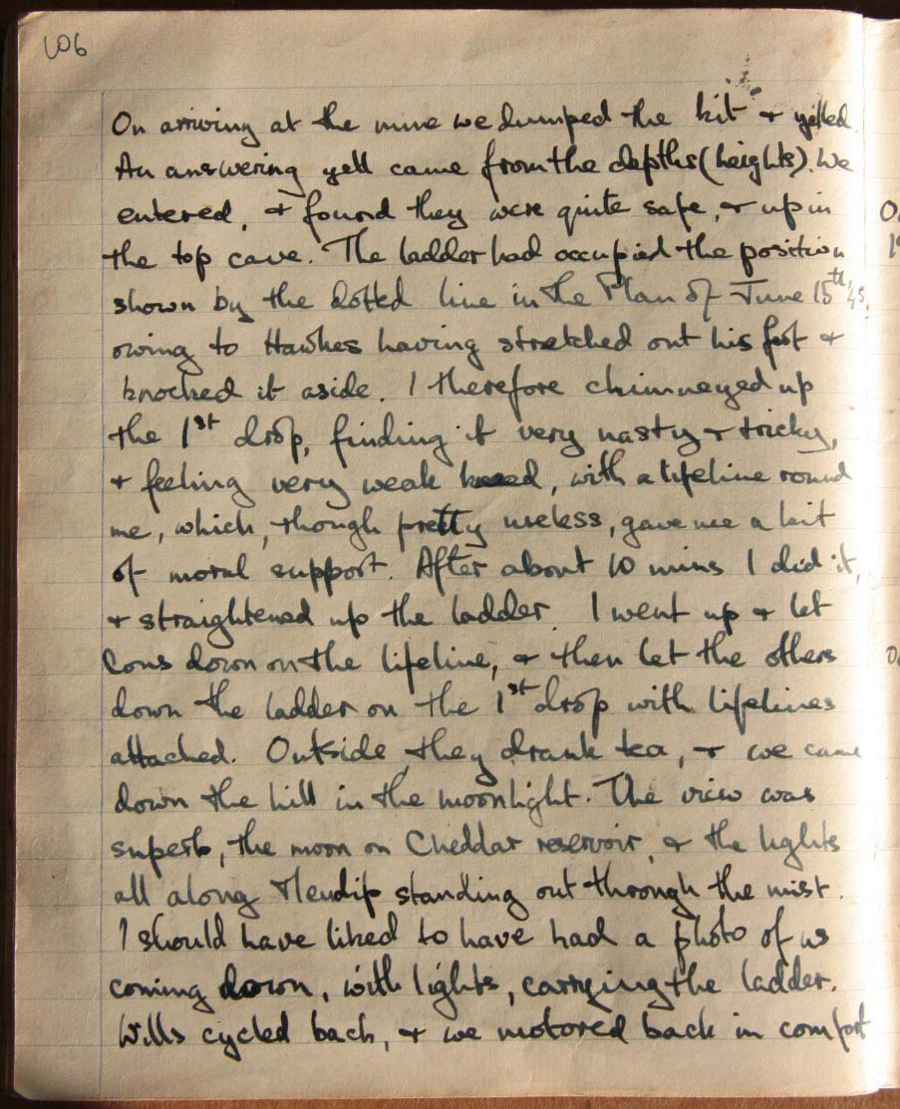 106
On arriving at the mine we dumped the kit + yelled.
An answering yell came from the depths (heights). We
entered, + found they were quite safe, + up in
the top cave. The ladder had occupied the position
shown by the dotted line in the Plan of June 15th, 45,
owing to Hawkes having stretched out his foot +
knocked it aside. I therefore chimneyed up
the 1st drop, finding it very nasty + tricky,
+ feeling very weak kneed, with a lifeline round
me, which, though pretty useless, gave me a bit
of moral support. After about 10 mins I did it,
+ straightened up the ladder. I went up + let
Cons down on the lifeline, + then let the others
down the ladder on the 1st drop with lifelines
attached. Outside, they drank tea, + we came
down the hill in the moonlight. The view was
superb, the moon on Cheddar reservoir, + the lights
all along Mendip standing out through the mist.
I should have liked to have had a photo of us
coming down, with lights, carrying the ladder.
Wills cycled back, + we motored back in comfort